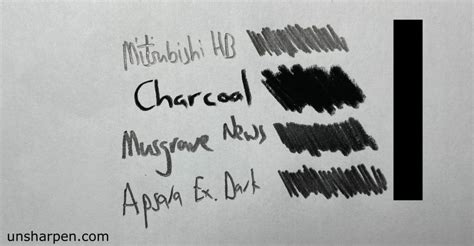 Mitsubishi HB
Charcoal
Musgrave News
Apsara Ex. Dark
unsharpen.com